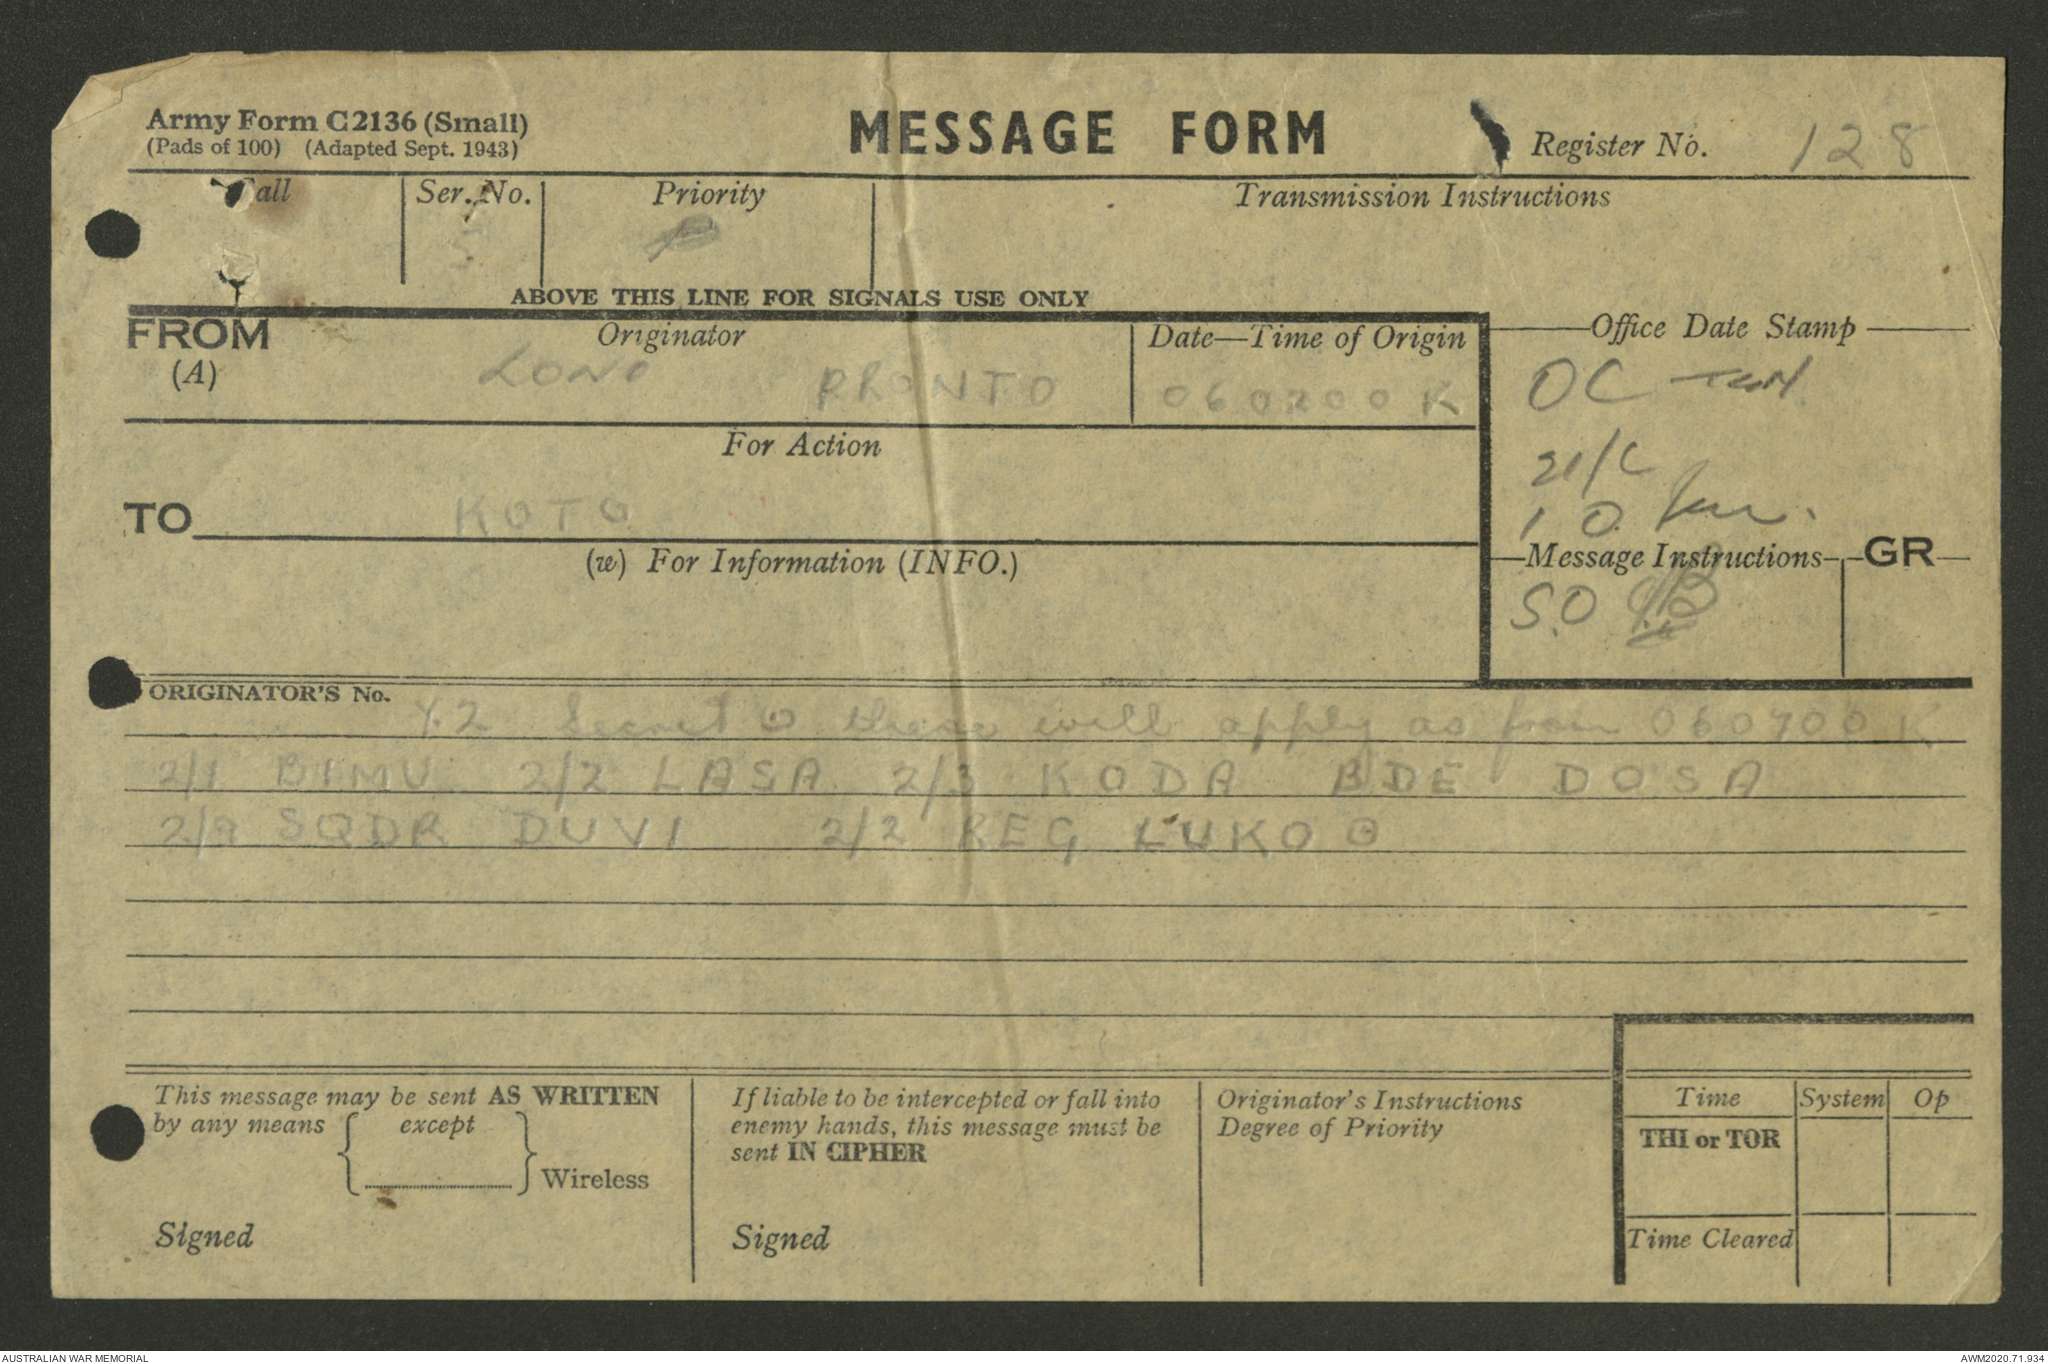 Army Form C2136 (Small)
(Pads of 100) (Adapted Sept. 1943)
MESSAGE FORM
Register No. 128
Call
Ser. No.
Priority
Transmission Instructions
ABOVE THIS LINE FOR SIGNALS USE ONLY
FROM
(A)
Originator
LONO PRONTO
Date—Time of Origin
060200K
Office Date Stamp
OC
2i/c
I O
For Action
TO KOTO
(w) For Information (INFO.)
Message Instructions
GR
S.O
ORIGINATOR'S No.
Y.2 Secret ⊙ these will apply as from 060700K
2/1 BIMU 2/2 LASA 2/3 KODA BDE DOSA
2/9 SQDR DUVI 2/2 REG LUKO ⊙
This message may be sent AS WRITTEN
by any means except
Wireless
Signed
If liable to be intercepted or fall into
enemy hands, this message must be
sent IN CIPHER
Signed
Originator's Instructions
Degree of Priority
Time System Op
THI or TOR
Time Cleared
AUSTRALIAN WAR MEMORIAL
AWM2020.71.934